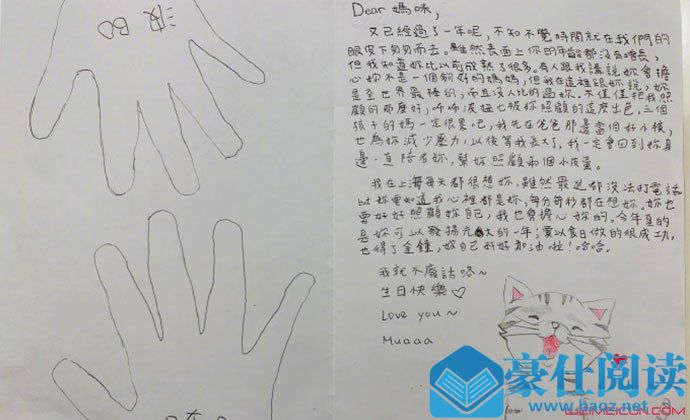 波 BO
Dear 媽咪,
又已經過了一年呢,不知不覺時間就在我們的
眼皮下匆匆而去。雖然表面上你的年齡都沒有增長,
但我知道妳比以前成熟了很多。有人跟我講說妳會擔
心妳不是一個夠好的媽媽,但我在這裡跟妳說,妳
是全世界最棒的,而且沒人比的過妳。不僅僅把我照
顧的那麼好,咘咘波妞也被妳照顧的這麼出色。三個
孩子的媽一定很累吧,我先在爸爸那邊當個好小孩,
也為妳減少壓力,以後等我長大了,我一定會回到妳身
邊一直陪著妳,幫妳照顧兩個小皮蛋。
我在上海每天都很想妳,雖然最近都沒法打電話
but 妳要知道我心裡都是妳,每分每秒都在想妳。妳也
要好好照顧妳自己,我也會擔心妳的。今年真的
是妳可以發揚光大的一年;宴以食日做的很成功,
也得了金鐘,妳自己好好加油啦!哈哈。
我就不廢話咯~
生日快樂♡
Love you~
Muaaa
豪仕阅读
www.haoz.net
WEIMEICUN.COM